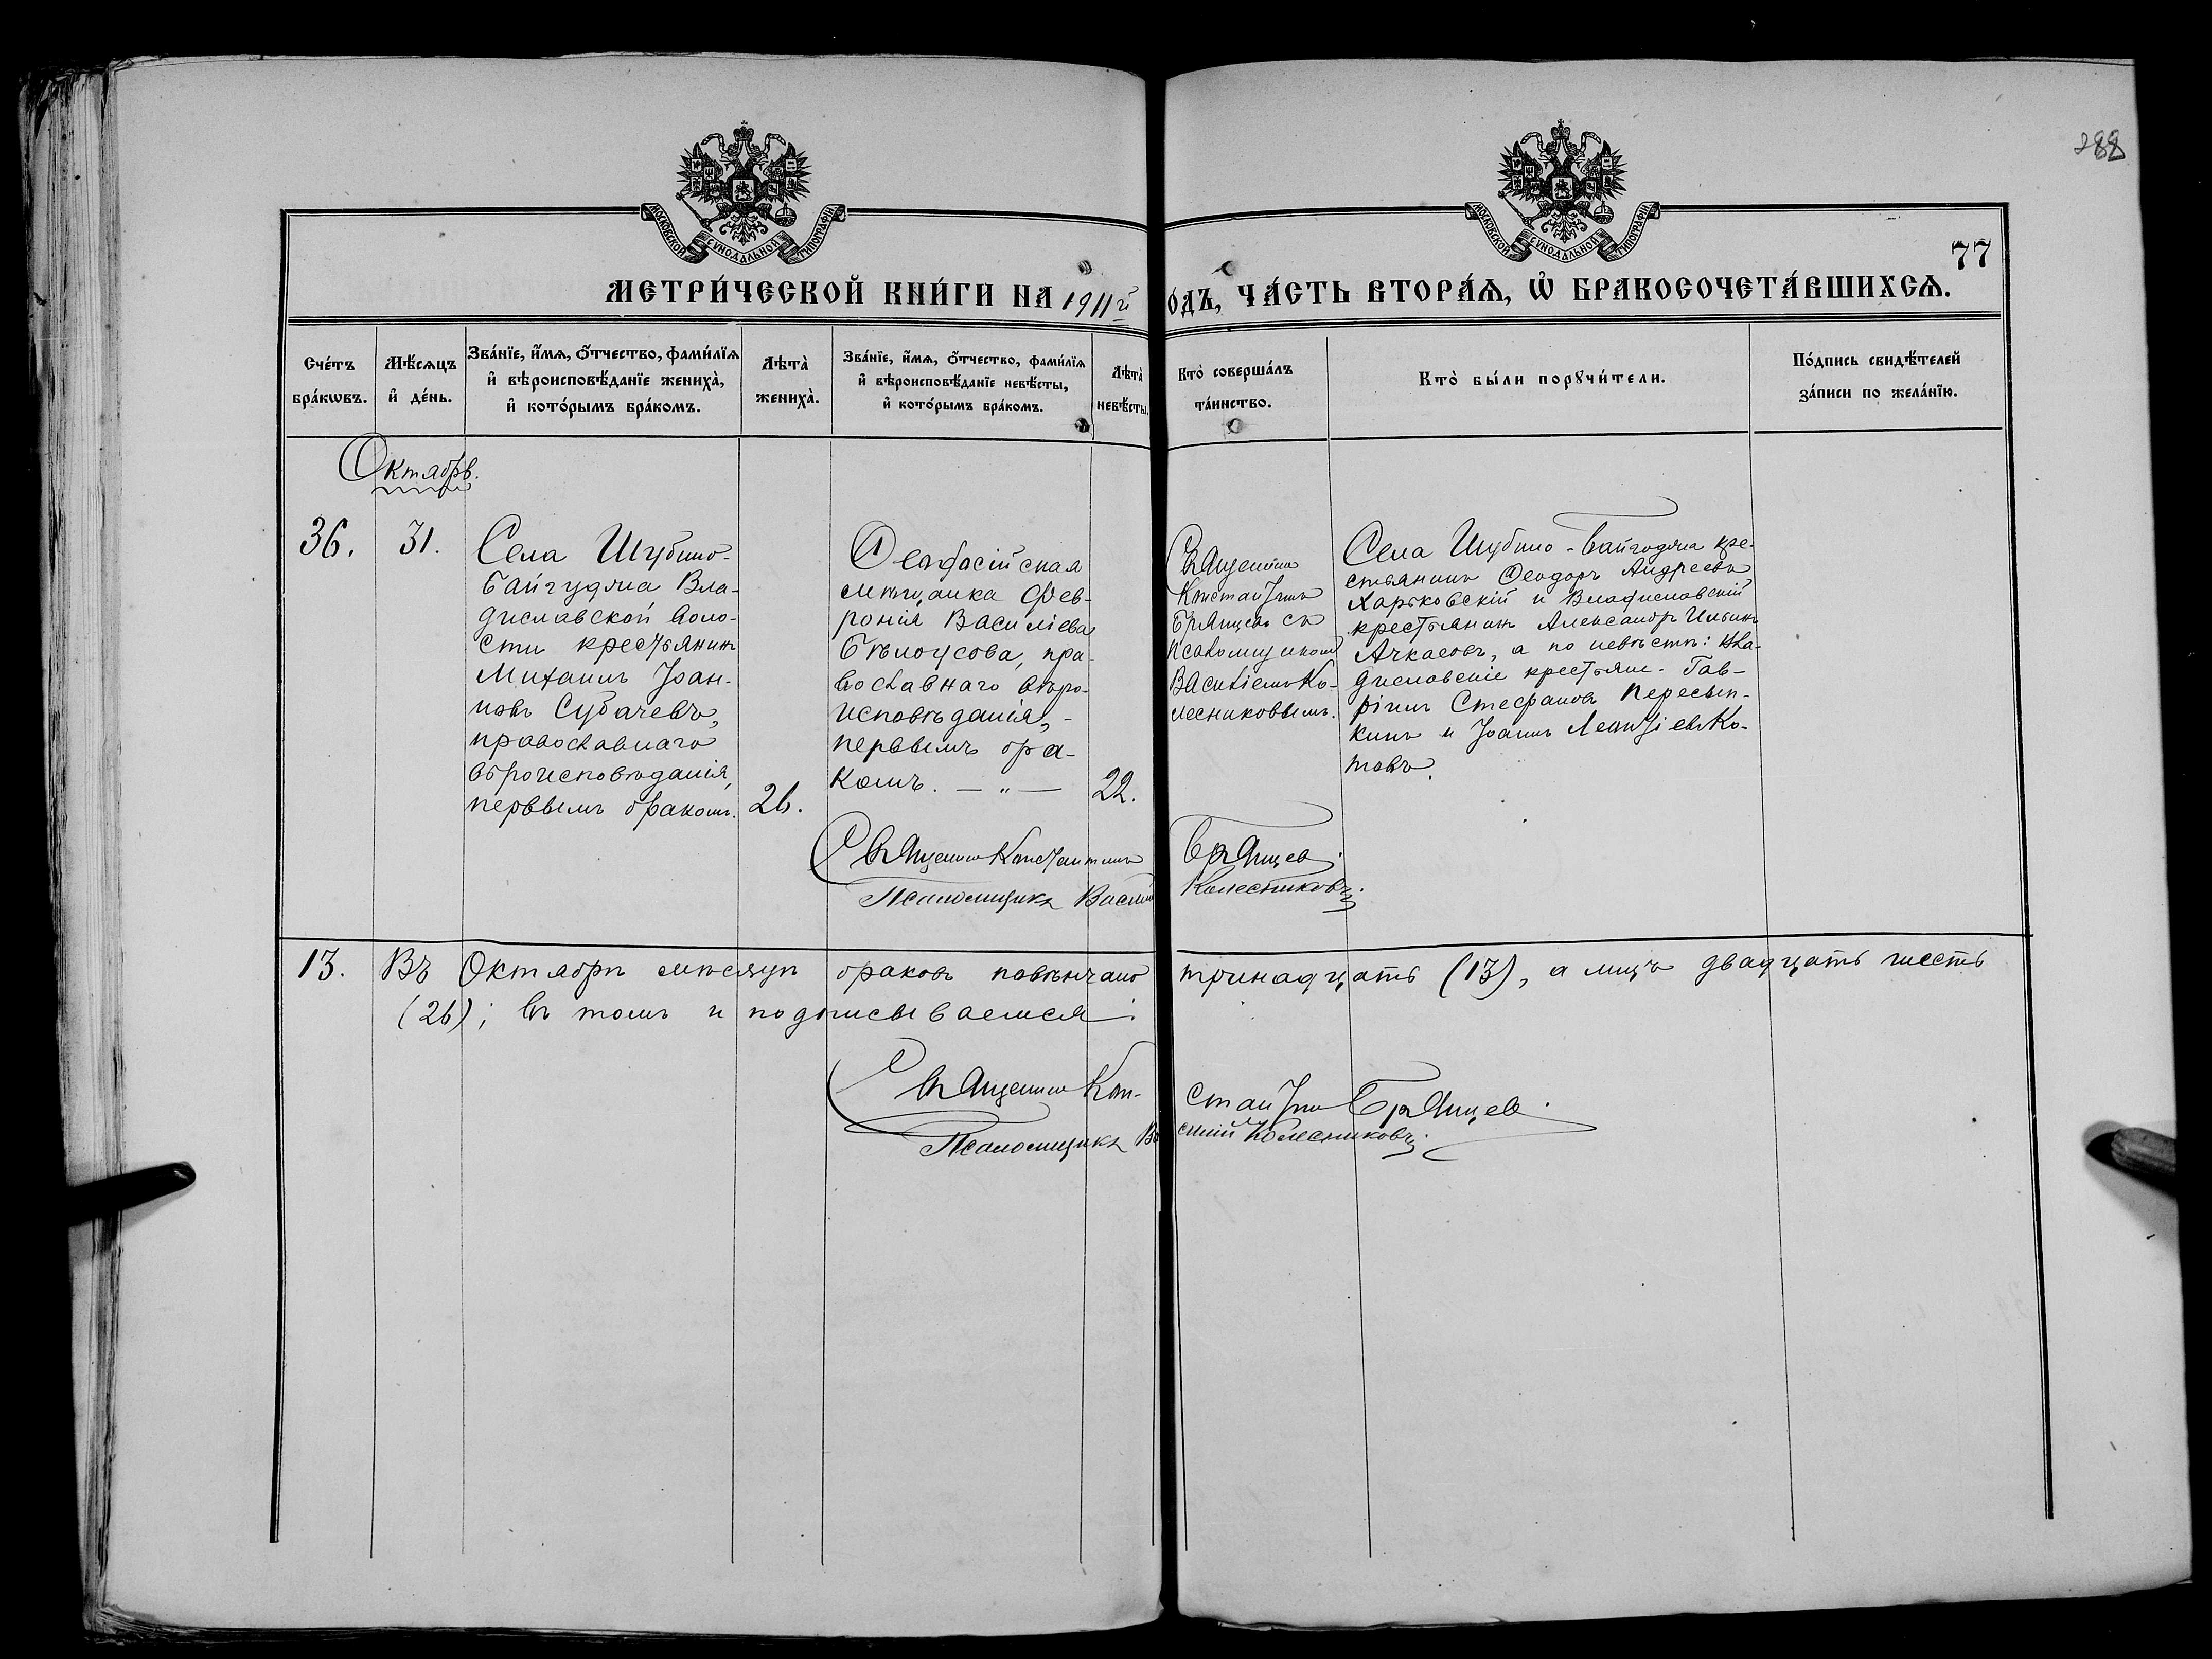 288
МОСКОВСКОЙ СУНОДАЛЬНОЙ ТИПОГРАФІИ
МОСКОВСКОЙ СУНОДАЛЬНОЙ ТИПОГРАФІИ
77
МЕТРИ́ЧЕСКОЙ КНИ́ГИ НА 1911й
О́ДЪ, ЧА́СТЬ ВТОРА́Ѧ, Ѽ БРАКОСОЧЕТА́ВШИХСѦ.
Сче́тъ
бра́кѡвъ.
Мѣ́сѧцъ
и҆ де́нь.
Зва́нїе, и҆́мѧ, ѻ҆́тчество, фами́лїѧ
и҆ вѣроисповѣ́данїе жениха̀,
и҆ кото́рымъ бра́комъ.
Лѣта̀
жениха̀.
Зва́нїе, и҆́мѧ, ѻ҆́тчество, фами́лїѧ
и҆ вѣроисповѣ́данїе невѣ́сты,
и҆ кото́рымъ бра́комъ.
Лѣта̀
невѣ́сты.
Кто̀ соверша́лъ
та́инство.
Кто̀ бы́ли порꙋчи́тели.
По́дпись свидѣ́телей
за́писи по жела́нїю.
Октябрь.
36.
31.
Села Шубино-
Байгуджа Вла-
диславской воло-
сти крестьянинъ
Михаилъ Іоан-
новъ Субачевъ,
православнаго
вѣроисповѣданія,
первымъ бракомъ.
26.
Ѳеодосійская
мѣщанка Фев-
ронія Василіева
Бѣлоусова, пра-
вославнаго вѣро-
исповѣданія, -
первымъ бра-
комъ. — " —
22.
Священникъ
Константинъ
Брянцевъ съ
псаломщикомъ
Василіемъ Ко-
лесниковымъ.
Села Шубино-Байгоджа кре-
стьянинъ Ѳеодоръ Андреевъ
Харьковскій и Владиславскій
крестьянинъ Александръ Ильинъ
Ачкасовъ, а по невѣстѣ: Вла-
диславскіе крестьяне - Гав-
ріилъ Стефановъ Пересып-
кинъ и Іоаннъ Леонтіевъ Ко-
товъ.
Священникъ Константинъ Брянцевъ.
Псаломщикъ Василій Колесниковъ.
13. Въ Октябрѣ мѣсяцѣ браковъ повѣнчано тринадцать (13), а лицъ двадцать шесть
(26); въ томъ и подписываемся:
Священникъ Константинъ Брянцевъ.
Псаломщикъ Василій Колесниковъ.